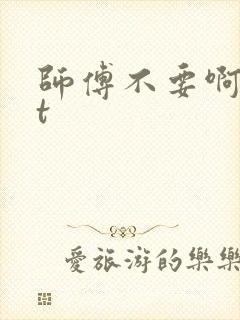 師傅不要啊
t
愛旅游的樂樂